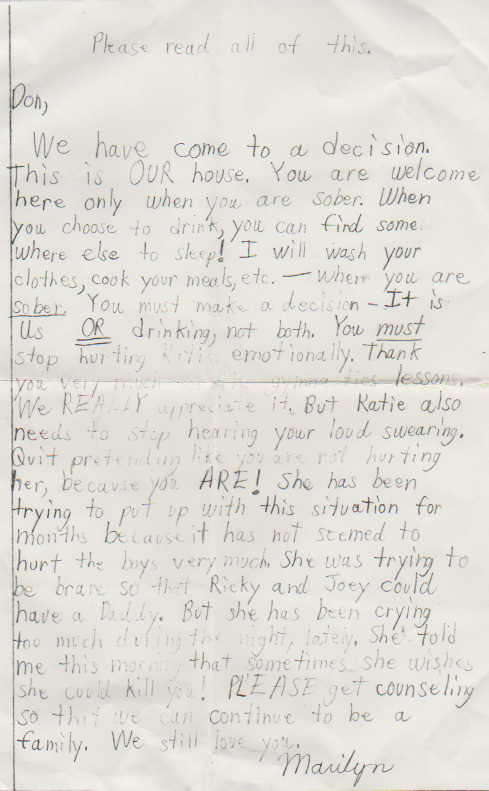 Please read all of this.
Don,
We have come to a decision.
This is OUR house. You are welcome
here only when you are sober. When
you choose to drink, you can find some
where else to sleep! I will wash your
clothes, cook your meals, etc. — when you are
sober. You must make a decision - It is
Us OR drinking, not both. You must
stop hurting Katie emotionally. Thank
you very much for the gymnastics lessons.
We REALLY appreciate it. But Katie also
needs to stop hearing your loud swearing.
Quit pretending like you are not hurting
her, because you ARE! She has been
trying to put up with this situation for
months because it has not seemed to
hurt the boys very much. She was trying to
be brave so that Ricky and Joey could
have a Daddy. But she has been crying
too much during the night, lately. She told
me this morning that sometimes she wishes
she could kill you! PLEASE get counseling
so that we can continue to be a
family. We still love you.
Marilyn